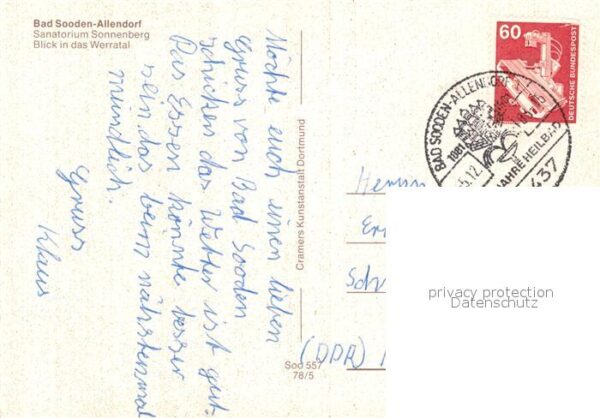 Bad Sooden-Allendorf
Sanatorium Sonnenberg
Blick in das Werratal
Möchte euch einen lieben
Gruss von Bad Sooden
schicken das Wetter ist gut.
Das Essen könnte besser
sein, das beim nähstenmal
mündlich.
Gruss
Klaus
Cramers Kunstanstalt Dortmund
Soo 557
78/5
60
DEUTSCHE BUNDESPOST
BAD SOODEN-ALLENDORF
1881
JAHRE HEILBAD
.12.
437
Herrn
Er
Sch
(DDR)
privacy protection
Datenschutz